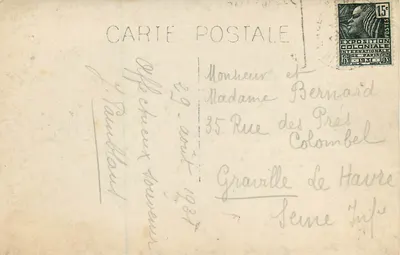 CARTE POSTALE
15c
EXPOSITION
COLONIALE
INTERNATIONALE
PARIS
1931
Affectueux souvenir
29 août 1931
Monsieur et
Madame Bernard
35 Rue des Prés
Colombel
Graville Le Havre
Seine Infre